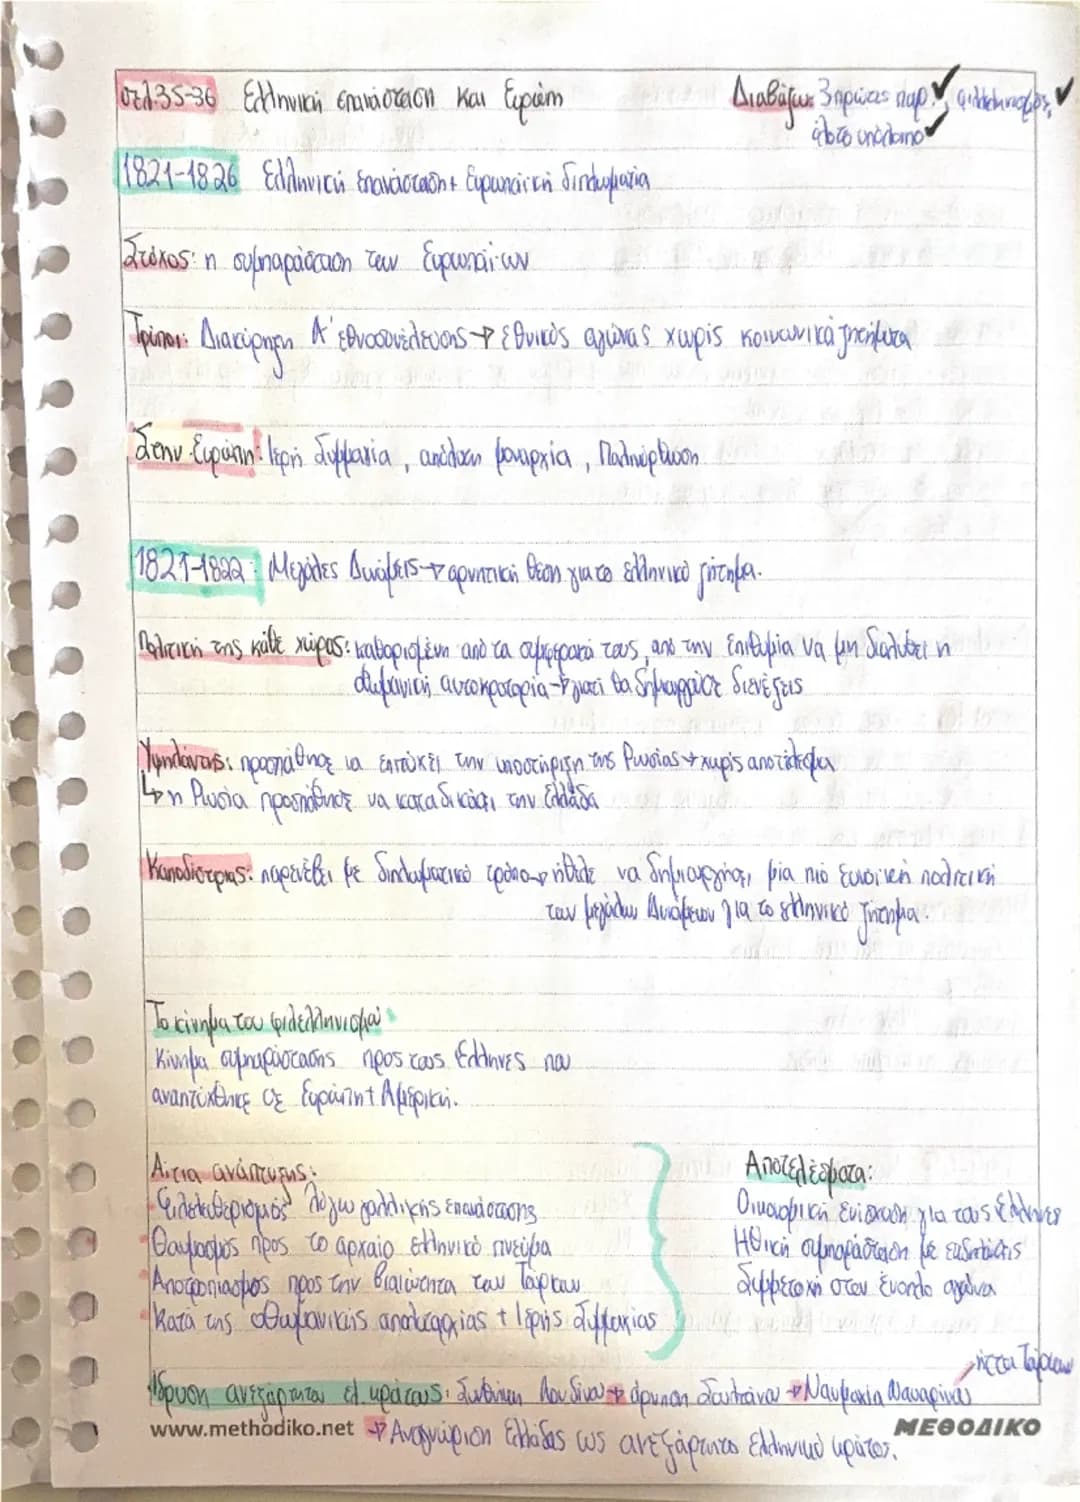 σελ.35-36 Ελληνική επανάσταση και Ευρώπη
Διαβάζω: 3 πρώτες παρ. ✓, φιλελληνισμός ✓
όλο το υπόλοιπο ✓
1821-1826 Ελληνική επανάσταση + Ευρωπαϊκή διπλωματία
Στόχος: η συμπαράσταση των Ευρωπαίων
Τρόποι: Διακύρηξη Α' εθνοσυνέλευσης → εθνικός αγώνας χωρίς κοινωνικά ζητήματα
Στην Ευρώπη: Ιερή Συμμαχία, απόλυτη μοναρχία, Παλινόρθωση
1821-1822: Μεγάλες Δυνάμεις → αρνητική θέση για το ελληνικό ζήτημα.
Πολιτική της κάθε χώρας: καθορισμένη από τα συμφέροντά τους, από την επιθυμία να μη διαλυθεί η
οθωμανική αυτοκρατορία → γιατί θα δημιουργούσε διενέξεις
Υψηλάντης: προσπάθησε να επιτύχει την υποστήριξη της Ρωσίας → χωρίς αποτέλεσμα
↳ η Ρωσία προσπάθησε να καταδικάσει την Ελλάδα
Καποδίστριας: παρενέβει με διπλωματικό τρόπο → ήθελε να δημιουργήσει μία πιο ευνοϊκή πολιτική
των μεγάλων Δυνάμεων για το ελληνικό ζήτημα.
Το κίνημα του φιλελληνισμού
Κίνημα συμπαράστασης προς τους Έλληνες που
αναπτύχθηκε σε Ευρώπη + Αμερική.
Αίτια ανάπτυξης:
Φιλελευθερισμός λόγω γαλλικής επανάστασης
Θαυμασμός προς το αρχαίο ελληνικό πνεύμα
Αποτροπιασμός προς την βιαιότητα των Τούρκων
Κατά της οθωμανικής απολυταρχίας + Ιερής Συμμαχίας
Αποτελέσματα:
Οικονομική ενίσχυση για τους Έλληνες
Ηθική συμπαράσταση με εκδηλώσεις
Συμμετοχή στον ένοπλο αγώνα
Ίδρυση ανεξάρτητου ελ. κράτους: Συνθήκη Λονδίνου → άρνηση Σουλτάνου → Ναυμαχία Ναυαρίνου → ήττα Τούρκων
→ Αναγνώριση Ελλάδας ως ανεξάρτητο Ελληνικό κράτος.
www.methodiko.net
ΜΕΘΟΔΙΚΟ